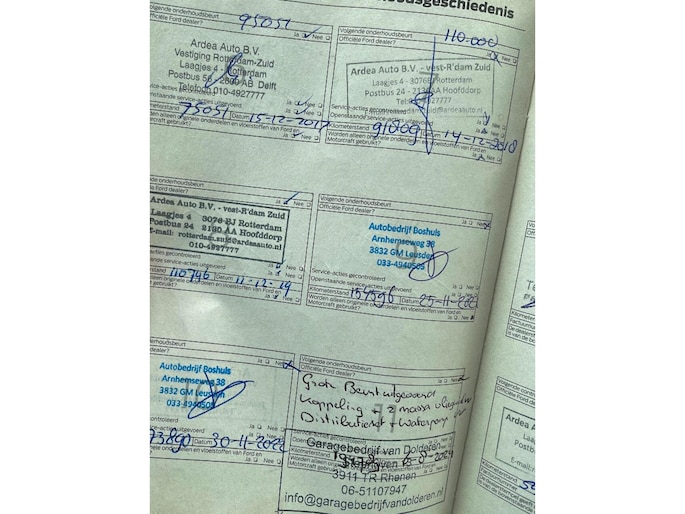 oudsgeschiedenis
Volgende onderhoudsbeurt 95051
Officiële Ford dealer? Ja Nee
Ardea Auto B.V.
Vestiging Rotterdam-Zuid
Laagjes 4 - Rotterdam
Postbus 56 - 2600 AB Delft
Telefoon 010-4927777
Service-acties
standaande service-acties uitgevoerd
Kilometerstand 75051 Datum 15-12-2017
den alleen originele onderdelen en vloeistoffen van Ford en
Motorcraft gebruikt?
Volgende onderhoudsbeurt 110.000
Officiële Ford dealer? Ja Nee
Ardea Auto B.V. - vest-R'dam Zuid
Laagjes 4 - 3076 BJ Rotterdam
Postbus 24 - 2130 AA Hoofddorp
Service-acties gecontroleerd
Openstaande service-acties uitgevoerd
Kilometerstand 91809 Datum 14-12-2018
Worden alleen originele onderdelen en vloeistoffen van Ford en
Motorcraft gebruikt? Ja Nee
gende onderhoudsbeurt
ciële Ford dealer? Ja Nee
Ardea Auto B.V. - vest-R'dam Zuid
Laagjes 4 3076 BJ Rotterdam
Postbus 24 2130 AA Hoofddorp
E-mail: rotterdam.zuid@ardeaauto.nl
010-4927777
rstand 110746 Datum 11-12-19
en alleen originele onderdelen en vloeistoffen van Ford en
craft gebruikt? Ja Nee
Volgende onderhoudsbeurt
Officiële Ford dealer? Ja Nee
Autobedrijf Boshuis
Arnhemseweg 38
3832 GM Leusden
033-4940505
Service-acties gecontroleerd
Openstaande service-acties uitgevoerd
Kilometerstand Datum 25-11-
Worden alleen originele onderdelen en vloeistoffen van Ford en
Motorcraft gebruikt? Ja Nee
de onderhoudsbeurt
Ford dealer? Ja
Autobedrijf Boshuis
Arnhemseweg 38
3832 GM Leusden
033-4940505
73890 Datum 30-11-2022
alleen originele onderdelen en vloeistoffen van Ford en
gebruikt? Ja Nee
Volgende onderhoudsbeurt
Officiële Ford dealer? Ja
Grote Beurt uitgevoerd
Koppeling + 2 massa vliegwiel
Distributieset + Waterpomp
Garagebedrijf van Dolderen
Kilometerstand
3911 TR Rhenen
06-51107947
info@garagebedrijfvandolderen.nl